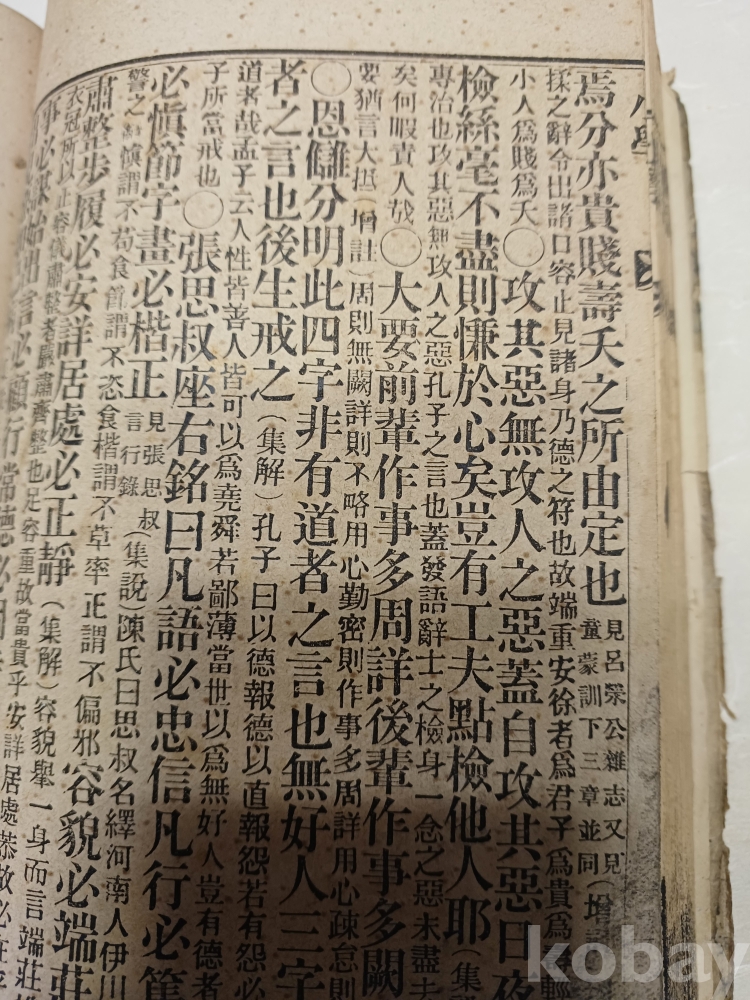 小學
焉分亦貴賤壽夭之所由定也
見呂滎公雜志又見
童蒙訓下三章並同
(增
揉之辭令出諸口容止見諸身乃德之符也故端重安徐者爲君子爲貴爲
輕
小人爲賤爲夭
〇攻其惡無攻人之惡蓋自攻其惡日夜
檢絲毫不盡則慊於心矣豈有工夫點檢他人耶
(集
專治也攻其惡無攻人之惡孔子之言也蓋發語辭士之檢身一念之惡未盡
矣何暇責人哉
〇大要前輩作事多周詳後輩作事多闕
要猶言大抵(增註)周則無闕詳則不略用心勤密則作事多周詳用心疎怠則
〇恩讎分明此四字非有道者之言也無好人三字
者之言也後生戒之
(集解)孔子曰以德報德以直報怨若有怨必
道者哉孟子云人性皆善人皆可以爲堯舜若鄙薄當世以爲無好人豈有德者
子所當戒也
〇張思叔座右銘曰凡語必忠信凡行必篤
必愼節字畫必楷正
見張思叔
言行錄
(集說)陳氏曰思叔名繹河南人伊川
警之
愼謂不苟食
謂不恣食楷謂不草率正謂不偏邪
容貌必端莊
肅整步履必安詳居處必正靜
(集解)容貌擧一身而言端莊
衣冠所以
容儀肅整者嚴肅齊整也足容重故當貴乎安詳居處恭故必
事必謀始出言必顧行常德必固
kobay